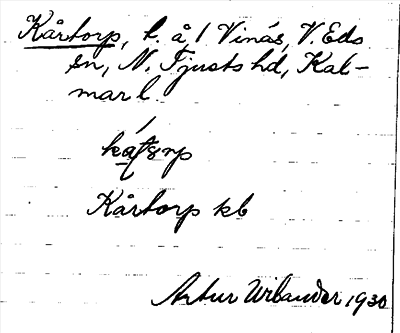 Kårtorp, t. å 1 Vinäs, V. Eds
sn, N. Tjusts hd, Kal-
mar l.
Kårtorp kb
Artur Wilander 1930